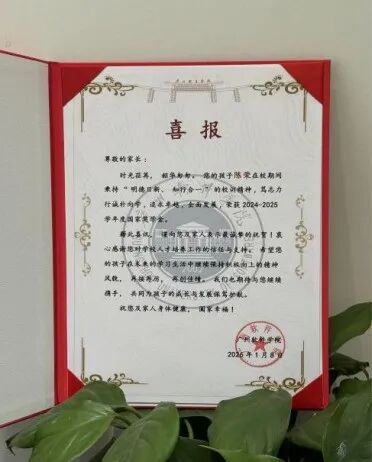 喜报
尊敬的家长：
时光荏苒，韶华如歌。您的孩子陈荣在校期间
秉持“明德日新、知行合一”的校训精神，笃志力
行诚朴向学，追求卓越，全面发展，荣获2024-2025
学年度国家奖学金。
藉此喜讯，谨向您及家人表示最诚挚的祝贺！衷
心感谢您对学校人才培养工作的信任与支持。希望您
的孩子在未来的学习生活中继续保持积极向上的精神
风貌，再接再厉，再创佳绩。我们也期待与您继续
携手，共同为孩子的成长与发展保驾护航。
祝您及家人身体健康，阖家幸福！
广州软件学院
2026年1月8日